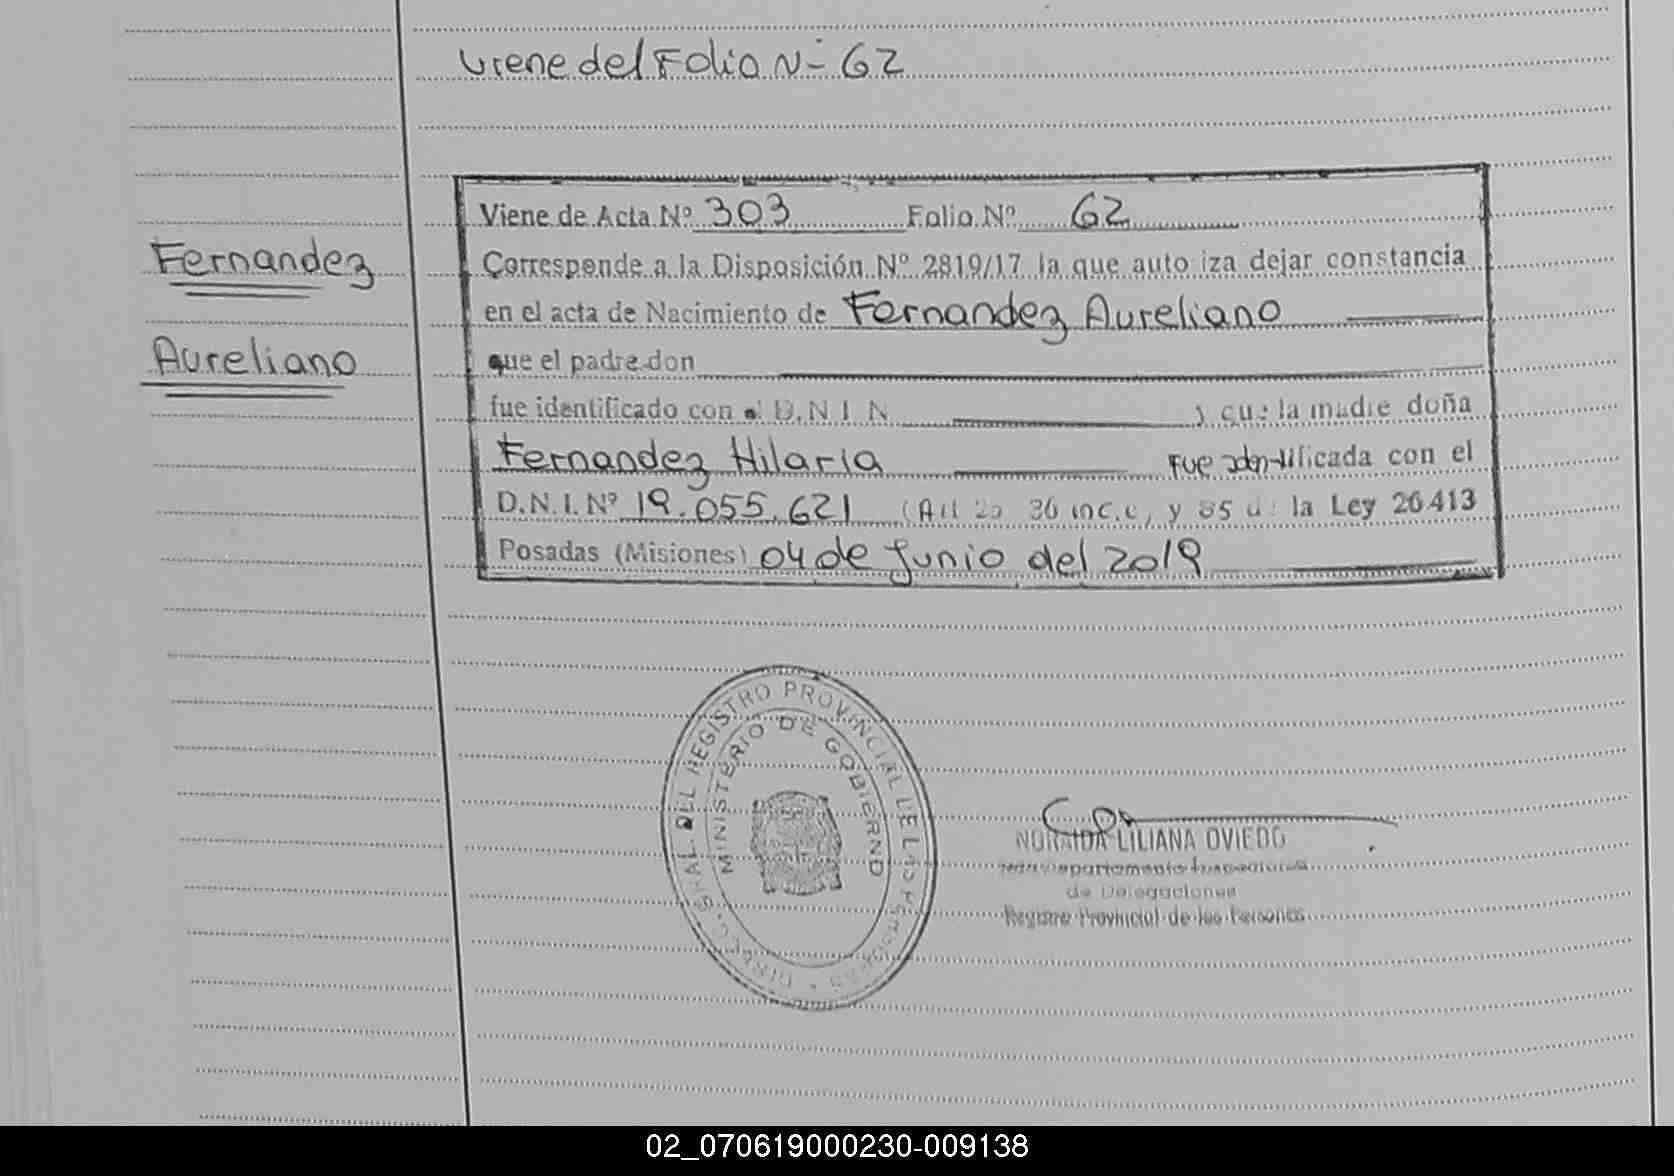 viene del Folio N- 62
Viene de Acta Nº 303 Folio Nº 62
Fernandez
Corresponde a la Disposición Nº 2819/17 la que auto iza dejar constancia
en el acta de Nacimiento de Fernandez Aureliano
Aureliano
que el padre don
fue identificado con el D.N.I.N. y que la madre doña
Fernandez Hilaria Fue identificada con el
D.N.I.Nº 19.055.621 (Art 36 inc.c, y 85 de la Ley 26413
Posadas (Misiones) 04 de Junio del 2019
DIRECC. GRAL. DEL REGISTRO PROVINCIAL DE LAS PERSONAS
MINISTERIO DE GOBIERNO
NORAIDA LILIANA OVIEDO
Departamento
de Delegaciones
Registro Provincial de las Personas
02_070619000230-009138